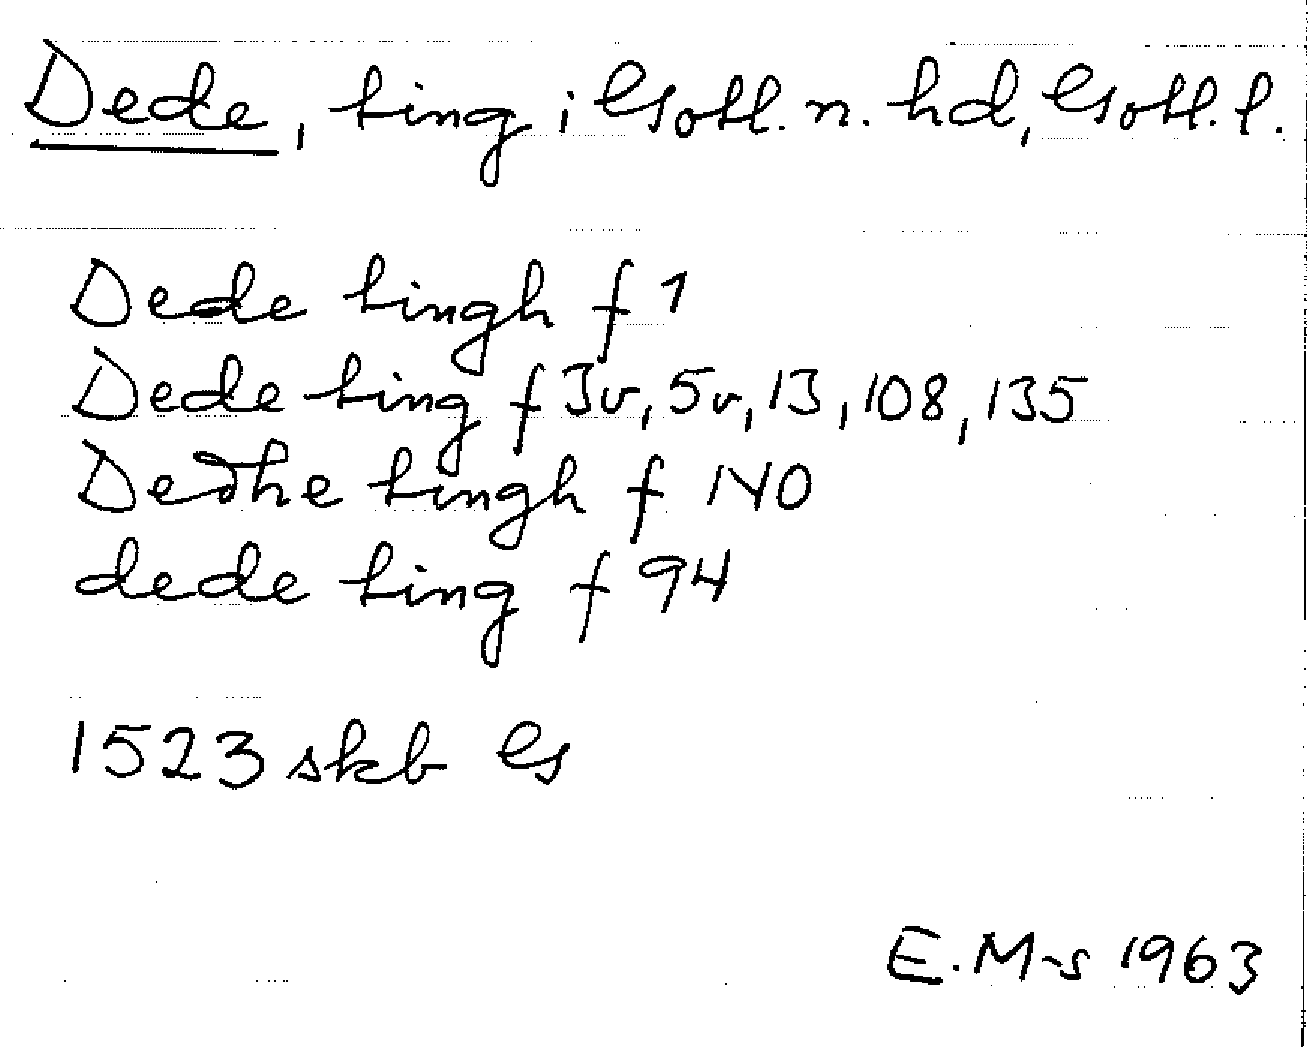 Dede, ting i Gotl. n. hd, Gotl. l.
Dede tingh f 1
Dede ting f 3v, 5v, 13, 108, 135
Dedhe tingh f 140
dede ting f 94
1523 skb G
E. M-s 1963